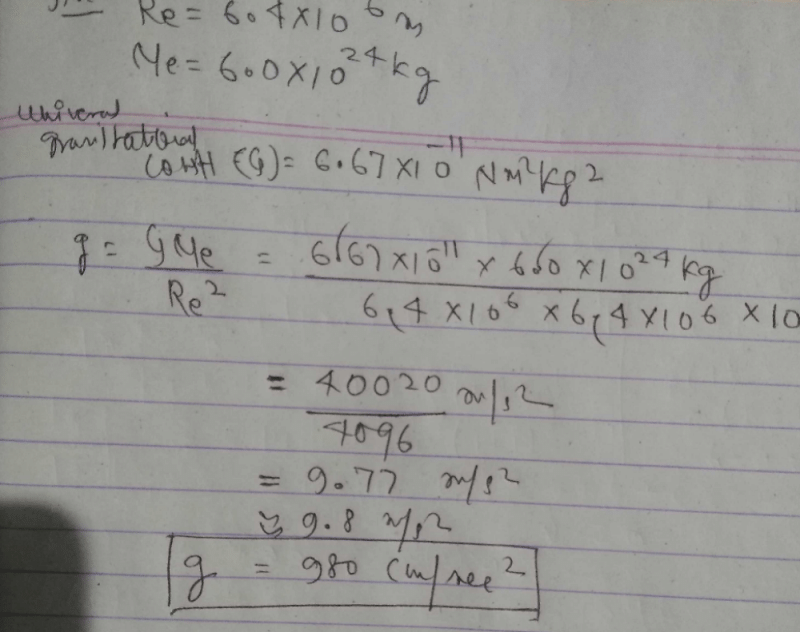 Re = 6.4×10⁶ m
Me = 6.0×10²⁴ kg
Universal
gravitational
const (G) = 6.67×10⁻¹¹ Nm²kg²
g = GMe/Re² = 6.67×10⁻¹¹ × 6.0 × 10²⁴ kg / 6.4 ×10⁶ × 6.4 ×10⁶ × 10
= 40020/4096 m/s²
= 9.77 m/s²
≃ 9.8 m/s²
g = 980 cm/sec²